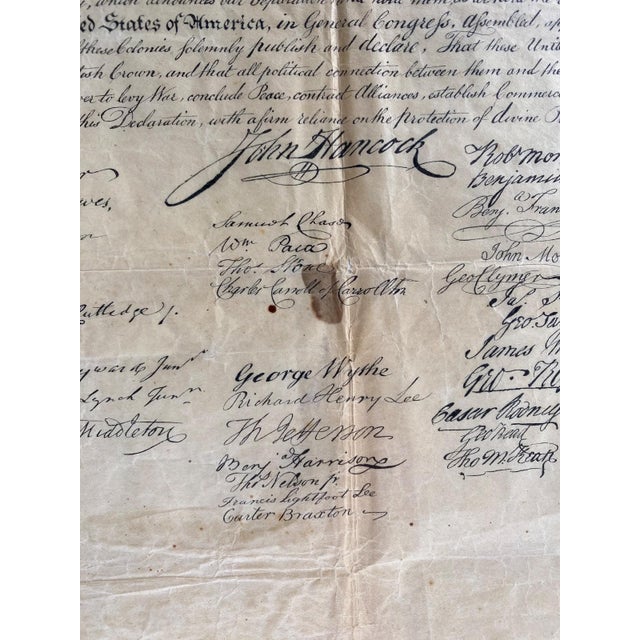 , which denounces our Separation, and hold them, as we hold
ed States of America, in General Congress, Assembled, ap
these Colonies, solemnly publish and declare, That these Unit
ish Crown, and that all political connection between them and the
er to levy War, conclude Peace, contract Alliances, establish Commerc
this Declaration, with a firm reliance on the protection of divine P
John Hancock
Rob.t Mor
Benjamin
Benj.a Fran
John Mo
Geo Clymer
Ja.s
Geo. Ta
James
Geo.
Caesar Rodney
Geo Read
Tho M.Kean
Samuel Chase
W.m Paca
Tho.s Stone
Charles Carroll of Carrollton
George Wythe
Richard Henry Lee
Th Jefferson
Benj.a Harrison
Tho.s Nelson jr.
Francis Lightfoot Lee
Carter Braxton
wes,
Rutledge /.
yward Jun.r
Lynch Jun.r
Middleton